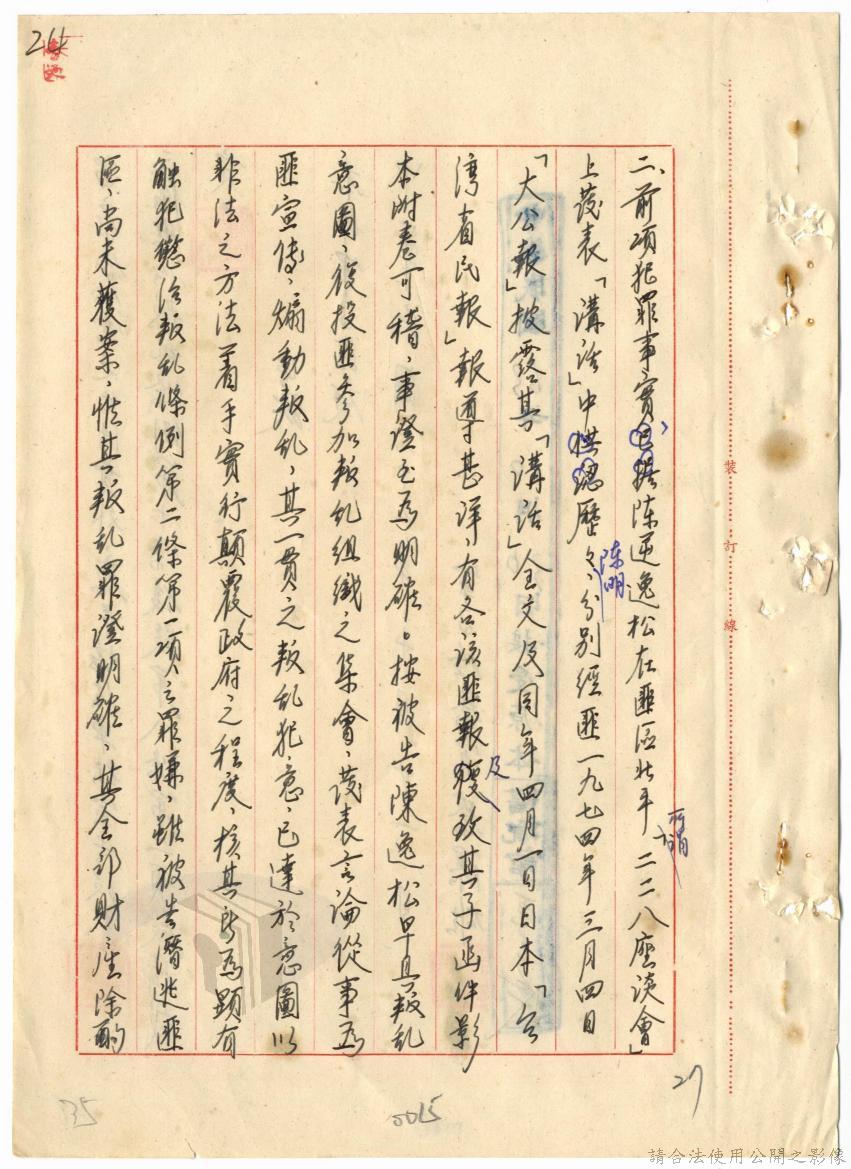 二、前項犯罪事實包括陈逆逸松在匪區北平所謂「二二八座談會」
上發表「講話」中供認歷々陈明、分別經匪一九七四年三月四日
「大公報」披露其「講話」全文及同年四月一日日本「台
湾省民報」報導甚详、有各该匪報及復致其子函件影
本附卷可稽、事證至為明確。按被告陳逸松早具叛乱
意圖、復投匪參加叛乱組織之集會、發表言論從事為
匪宣傳、煽動叛乱、其一貫之叛乱犯意、已達於意圖以
非法之方法着手實行顛覆政府之程度、核其所為顕有
触犯懲治叛乱條例第二條第一項之罪嫌、雖被告潛逃匪
區、尚未獲案、惟其叛乱罪證明確、其全部財産除酌
裝訂線
27
35
0015
請合法使用公開之影像